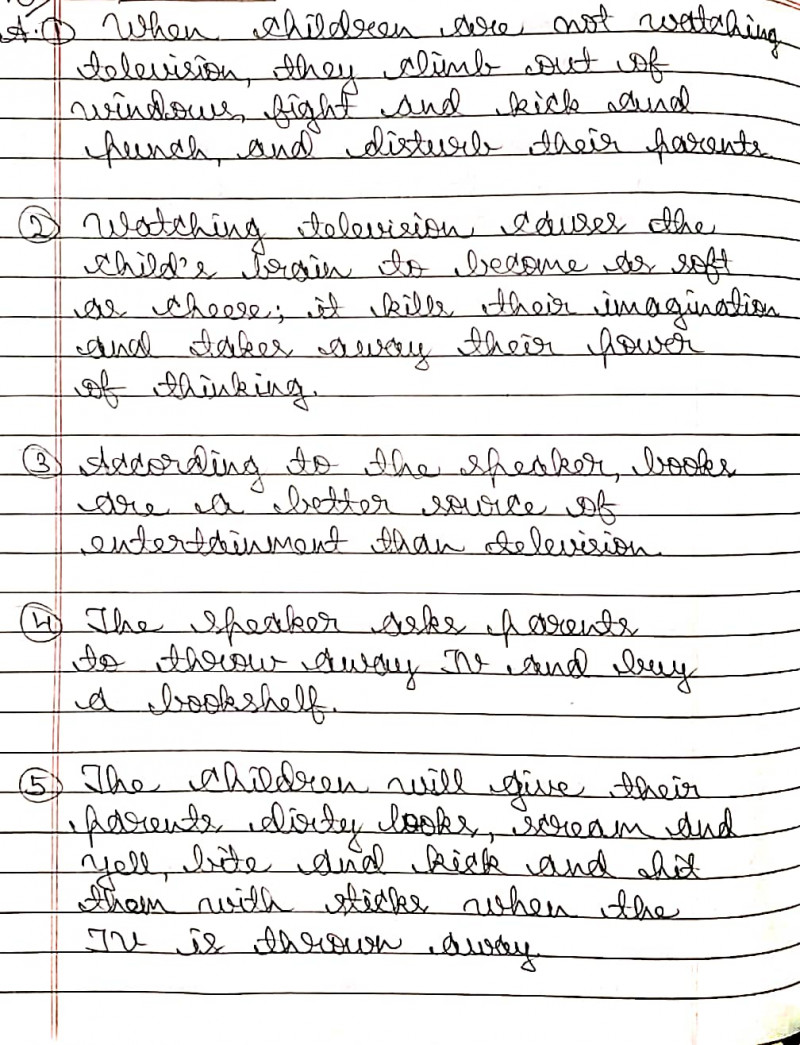 A. ① When children are not watching
television, they climb out of
windows, fight and kick and
punch, and disturb their parents
② Watching television causes the
child's brain to become as soft
as cheese; it kills their imagination
and takes away their power
of thinking.
③ According to the speaker, books
are a better source of
entertainment than television.
④ The speaker asks parents
to throw away TV and buy
a bookshelf.
⑤ The children will give their
parents dirty looks, scream and
yell, bite and kick and hit
them with sticks when the
TV is thrown away.